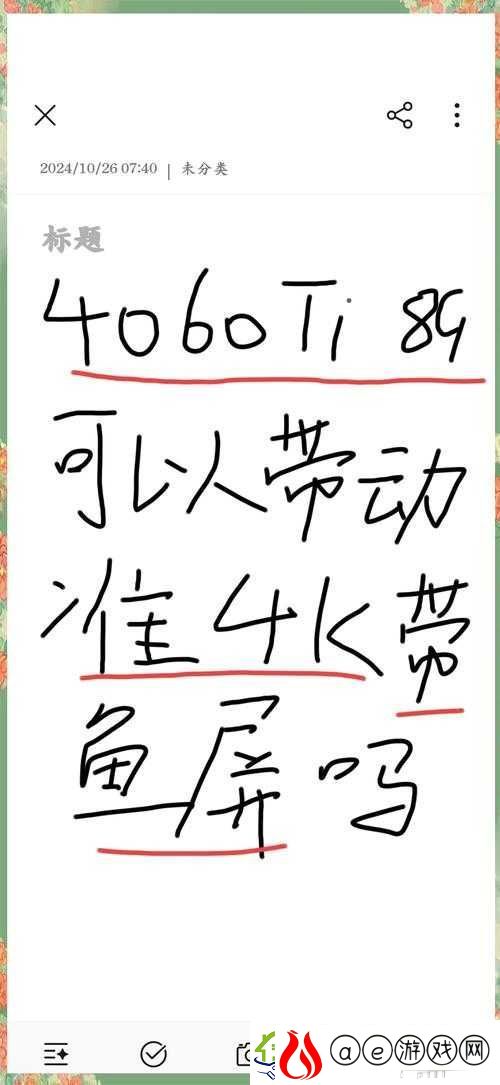 2024/10/26 07:40 | 未分类
标题
4060Ti 8G
可以带动
准4K带
鱼屏吗
ae游戏网